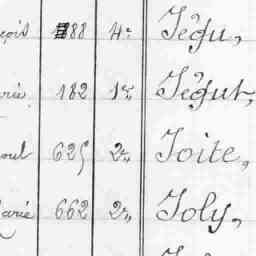 çois 188 4e Jégu,
arie 182 1re Jégut,
oul 625 2e, Joite,
Marie 662 2e, Joly,